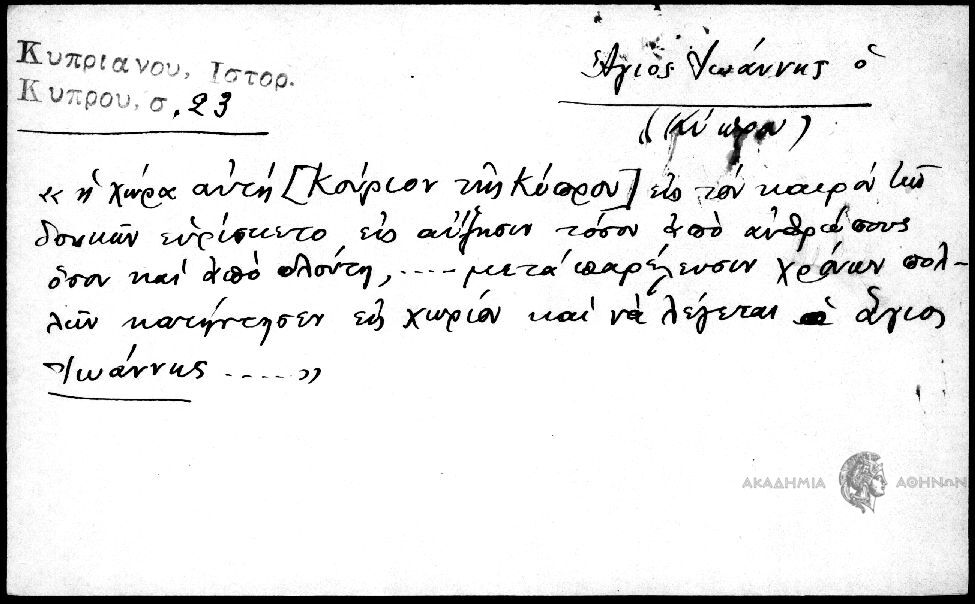 Κυπριανου, Ιστορ.
Κυπρου, σ. 23
Ἅγιος Ἰωάννης ὁ
(Κύπρου)
« ἡ χώρα αὐτή [Κούριον τῆς Κύπρου] εἰς τόν καιρόν τῶν
δουκῶν εὑρίσκετο εἰς αὔξησιν τόσον ἀπό ἀνθρώπους
ὅσον καί ἀπό πλούτη, .... μετά παρέλευσιν χρόνων πολ-
λῶν κατήντησεν εἰς χωρίον καί νά λέγεται ὁ ἅγιος
Ἰωάννης ..... »
ΑΚΑΔΗΜΙΑ ΑΘΗΝΩΝ